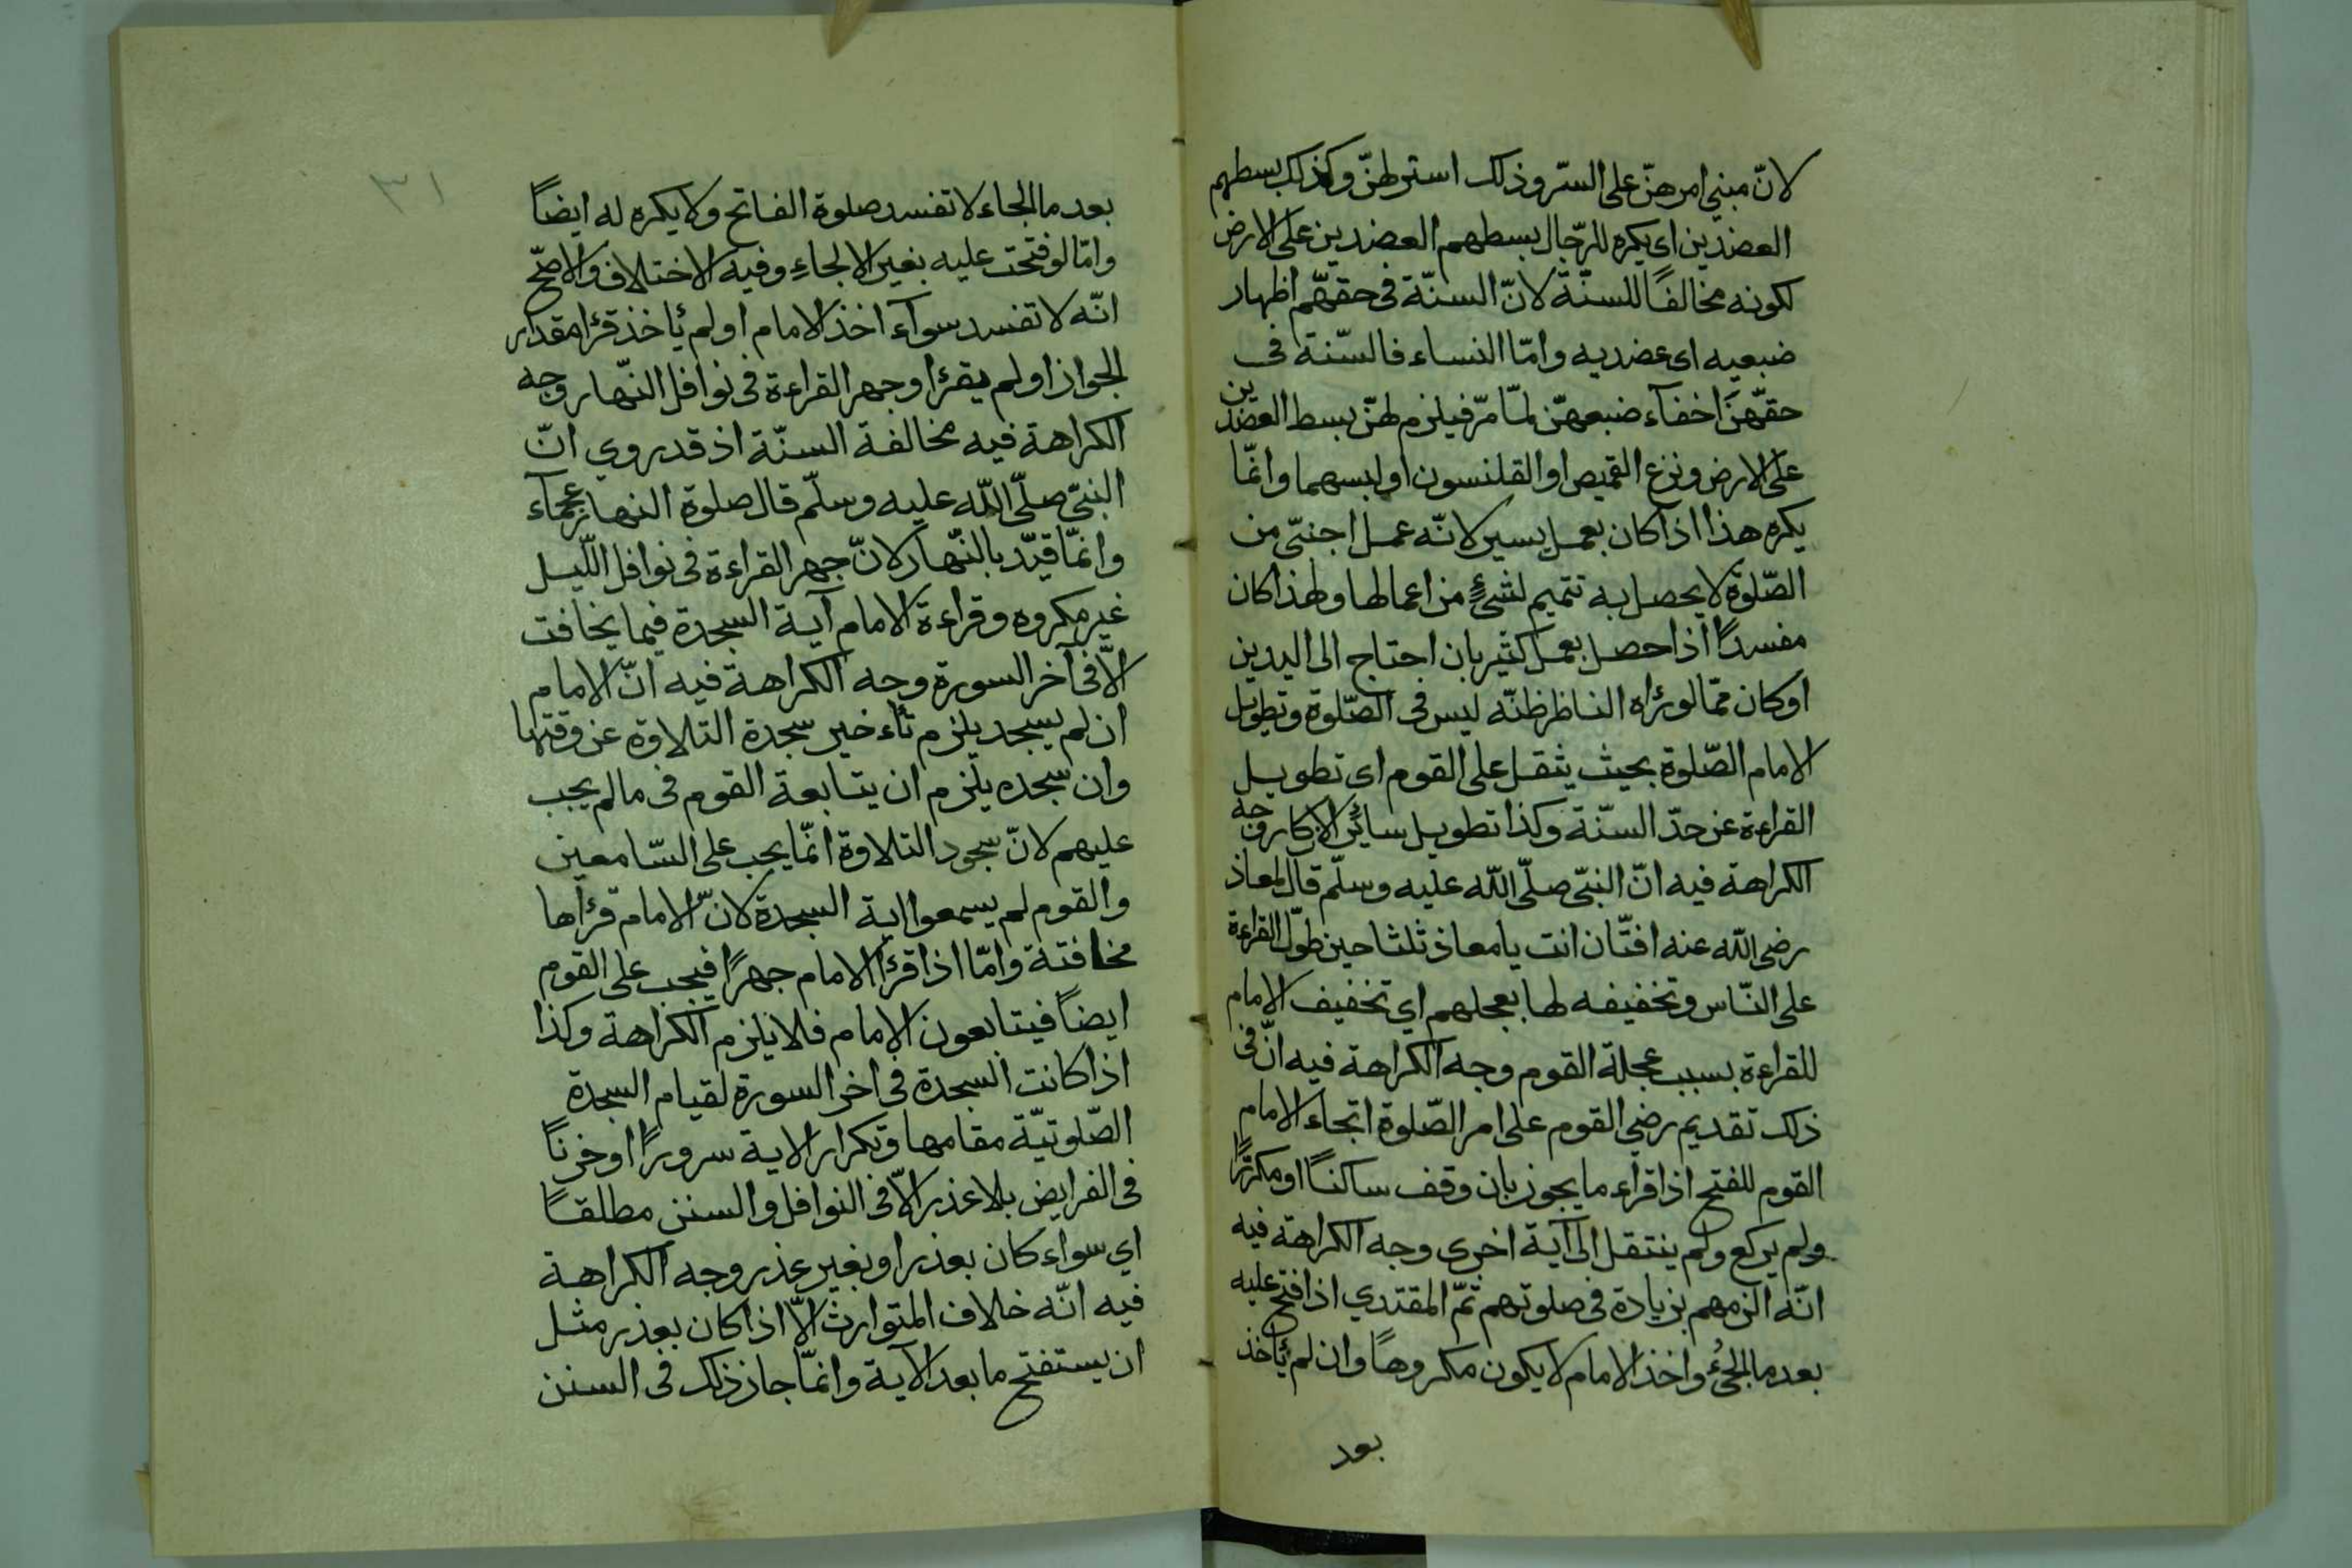 لانّ مبنى امرهنّ على السّتر وذلك استر لهنّ وكذلك بسطهم
العضدين اى يكره للرّجال بسطهم العضدين على الارض
لكونه مخالفًا للسنّة لانّ السنّة فى حقهّم اظهار
ضبعيه اى عضديه وامّا النساء فالسّنة فى
حقّهنّ اخفآء ضبعهنّ لمّا مرّ فيلزم لهنّ بسط العضدين
على الارض ونزع القميص او القلنسون او لبسهما وانمّا
يكره هذا اذا كان بعمل يسير لانّه عمل اجنبّى من
الصّلوة لا يحصل به تتميم لشئٍ من اعمالها ولهذا كان
مفسدًا اذا حصل بعمل كثير بان احتاج الى اليدين
او كان ممّا لو رُاه الناظر ظنّه ليس فى الصّلوة وتطويل
الامام الصّلوة بحيث يثقل على القوم اى تطويل
القراءة عن حدّ السنّة وكذا تطويل سائر الاذكار وجه
الكراهة فيه انّ النبّى صلّى اللّه عليه وسلّم قال لمعاذ
رضى اللّه عنه افتّان انت يا معاذ ثلثا حين طوّل القراءة
على النّاس وتخفيفه لها بعجلهم اي تخفيف الامام
للقراءة بسبب عجلة القوم وجه الكراهة فيه انّ فى
ذلك تقديم رضي القوم على امر الصّلوة اتجاء الامام
القوم للفتح اذا قراء ما يجوز بان وقف ساكتًا او مكررًا
ولم يركع ولم ينتقل الى آية اخرى وجه الكراهة فيه
انّه الزمهم بزيادة فى صلوتهم ثمّ المقتدي اذا فتح عليه
بعد ما الجئُ واخذ الامام لا يكون مكروهًا وان لم يُاخذ
بعد
٣١
بعد ما الجاء لا تفسد صلوة الفاتح ولا يكره له ايضًا
وامّا لو فتحت عليه بغير الالجاءِ وفيه الاختلاف والاصحّ
انّه لا تفسد سوآء اخذ الامام او لم يُاخذ قرُا مقدار
الجواز او لم يقرُا وجهر القراءة فى نوافل النّهار وجه
الكراهة فيه مخالفة السنّة اذ قد روي انّ
النبّى صلّى اللّه عليه وسلّم قال صلوة النهار عجمآء
وانمّا قيّد بالنّهار لانّ جهر القراءة فى نوافل اللّيل
غير مكروه وقراءة الامام آية السجدة فيما يخافت
الاّ فى آخر السورة وجه الكراهة فيه انّ الامام
ان لم يسجد يلزم تُاءخير سجدة التلاوة عن وقتها
وان سجده يلزم ان يتابعة القوم فى ما لم يجب
عليهم لانّ سجود التلاوة انمّا يجب على السّامعين
والقوم لم يسمعوا اية السجدة لانّ الامام قرأها
مخافتة وامّا اذا قرأ الامام جهرًا فيجب على القوم
ايضًا فيتابعون الامام فلا يلزم الكراهة وكذا
اذا كانت السجدة فى اخر السورة لقيام السجدة
الصّلوتيّة مقامها وتكرار الاية سرورًا او حزنًا
فى الفرايض بلا عذر الاّ فى النوافل والسنن مطلقًا
اي سواء كان بعذر او بغير عذر وجه الكراهة
فيه انّه خلاف المتوارث الاّ اذا كان بعذر مثل
ان يستفتح ما بعد الآية وانمّا جاز ذلك فى السنن